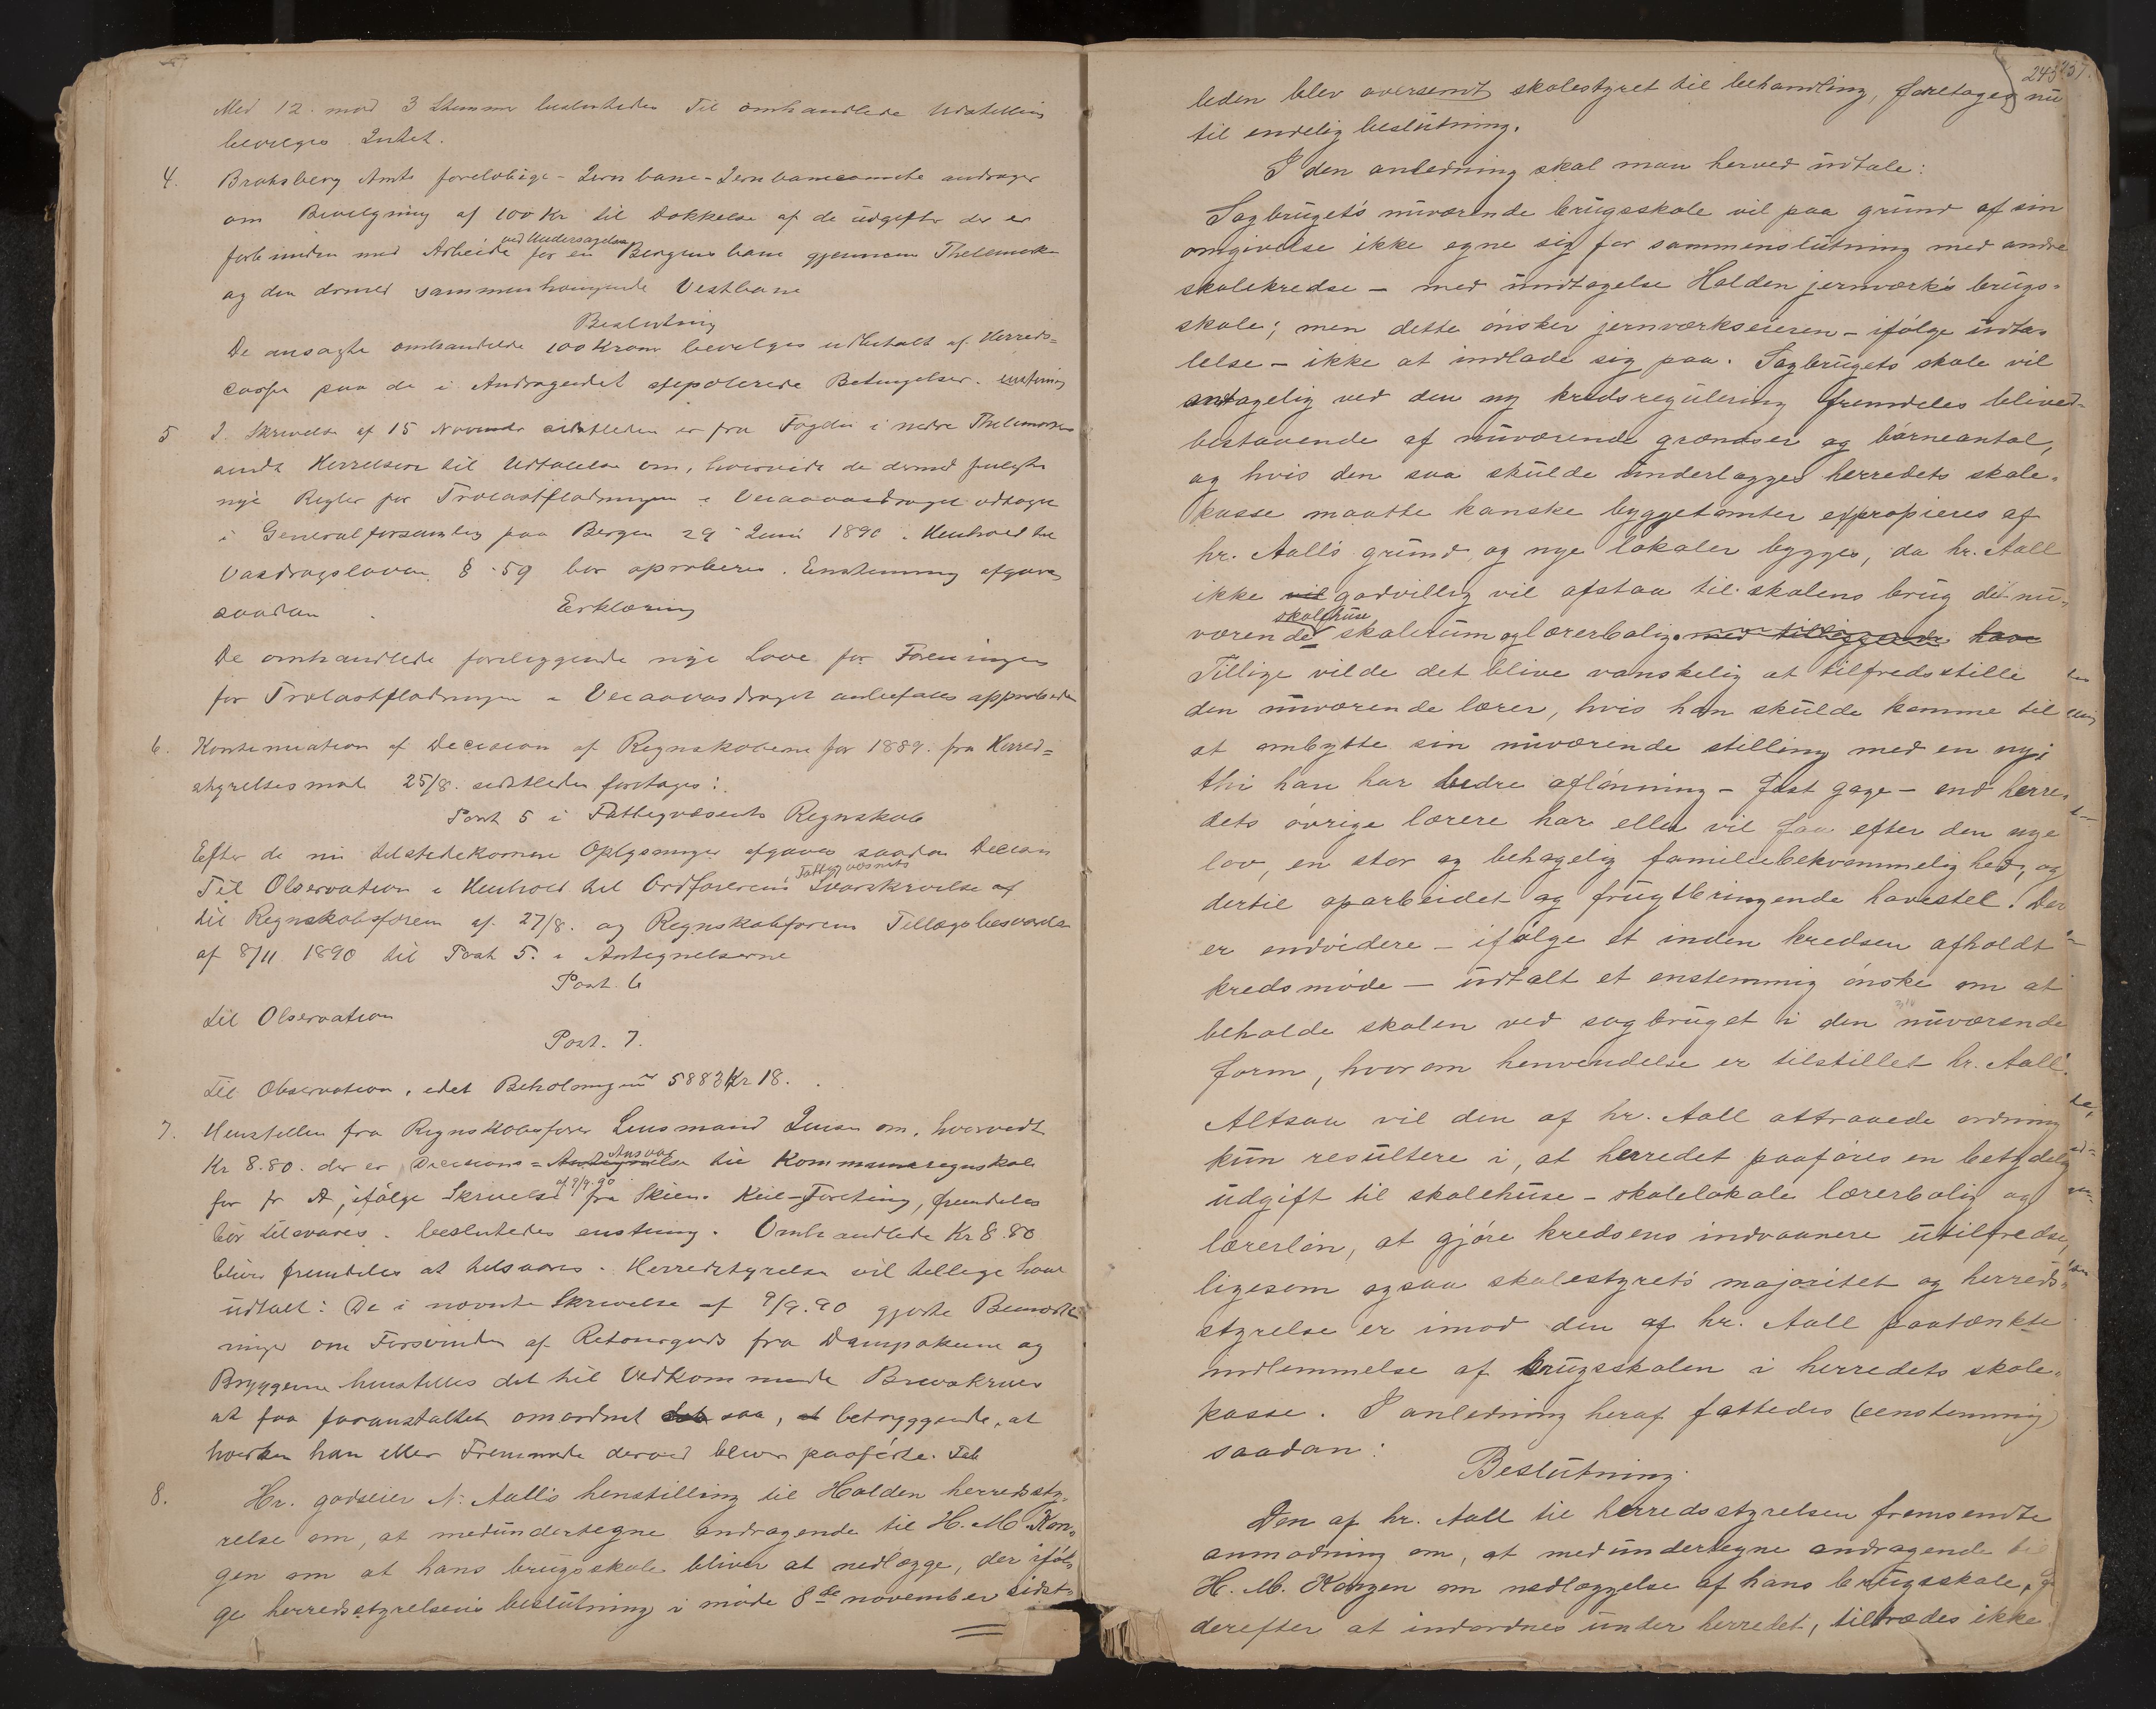 Med 12 mod 3 Stemmer besluttedes Til omhandlede Udstilling
bevilges Intet.
4. Bratsberg Amts foreløbige - Jernbane - Jernbanecomite andrager
om Bevilgning af 100 Kr til Dækkelse af de udgifter der er
forbunden med Arbeide ved Undersøgelsen for en Bergensbane gjennem Thelemarken
og den dermed sammenhængende Vestbane
Beslutning
De ansøgte omhandlede 100 Kroner bevilges udbetalt af Herreds=
cassen paa de i Andragendet Betingelser. enstemmig
5 I Skrivelse af 15 November sidstleden er fra Fogden i nedre Thelemarken
Herredstyre til Udtalelse om, hvorvidt de dermed fulgte
nye Regler for Trælastflødningen i vedtagne
i Generalforsamling paa Bergen 29 Juni 1890 i Henhold til
Vasdragsloven § 59 bør aproberes. Enstemmig afgaves
saadan Erklæring
De omhandlede foreliggende nye Love for Foreningen
for Trælastflødningen i anbefales approberede
6. Kontinuation af Decision af Regnskaberne for 1889 fra Herred=
styrelsesmøde 25/8 sidstleden foretages:
Post 5 i Fattigvæsenets Regnskab
Efter de nu tilstedekomne Oplysninger afgaves saadan Decision
Til Observation i Henhold til Ordførerens i Fattigvæsenets Svarskrivelse af
til Regnskabsføreren af 27/8. og Regnskabsførerens Tillægsbesvarelse
af 8/11 1890 til Post 5. i Antegnelserne
Post. 6
Til Observation
Post. 7.
Til Observation, idet Beholdningen 5883 Kr 18.
7. Henstillen fra Regnskabsfører Lensmand Jensen om, hvorvidt
Kr 8.80. der er Decisions = Ansvar til Kommuneregnskab
for fr A, ifølge Skrivelse af 9/9.90 fra Skien, fremdeles
bør tilsvares. besluttedes enstemmig. Omhandlede Kr 8.80
bliver fremdeles at tilsvares. Herredstyrelsen vil tillige have
udtalt: De i nævnte Skrivelse af 9/9.90 gjorte Bemærk
ninger om Forsvinden af Retourgods fra Dampskene og
Bryggerne henstilles det til Vedkommende
at faa foranstaltet omordnet saa, betryggende, at
hverken han eller Fremmede derved bliver paaførte Tab
8. Hr. godseier N. Aall's henstilling til Holden herredssty-
relse om, at medundertegne andragende til H. M. Kon-
gen om at hans brugsskole bliver at nedlægge, der iføl-
ge herredsstyrelsens beslutning i møde 8de november sidst-
243 257.
leden blev oversendt skolestyret til behandling, foretages nu
til endelig beslutning.
I den anledning skal man herved udtale:
Sagbrugets nuværende brugsskole vil paa grund af sin
omgivelse ikke egne sig for sammenslutning med andre
skolekredse – med undtagelse Holden jernværks brugs-
skole; men dette ønsker jernværkseieren – ifølge udta-
lelse – ikke at indlade sig paa. Sagbrugets skole vil
antagelig ved den ny kredsregulering fremdeles blive ved-
bestaaende af nuværende grændser og børneantal,
og hvis den saa skulde underlægges herredets skole-
kasse maatte kanske byggetomter expropieres af
hr. Aall's grund og nye lokaler bygges, da hr. Aall
ikke vil godvillig vil afstaa til skolens brug det nu-
værende skolehuse skolerum og lærerbolig med tilliggende have
Tillige vilde det blive vanskelig at tilfredsstille
den nuværende lærer, hvis han skulde komme til
at ombytte sin nuværende stilling med en ny;
thi han har bedre aflønning – fast gage – end herre-
dets øvrige lærere har eller vil faa efter den nye
lov, en stor og behagelig familiebekvemmelighed, og
dertil oparbeidet og frugtbringende havestel. Der
er endvidere – ifølge et inden kredsen afholdt
kredsmøde – udtalt et enstemmig ønske om at
beholde skolen ved sagbruget i den nuværende
form, hvorom henvendelse er tilstillet hr. Aall.
Altsaa vil den af hr. Aall attraaede ordning
kun resultere i, at herredet paaføres en betydelig
udgift til skolehuse – skolelokale lærerbolig og
lærerløn, at gjøre kredsens indvaanere utilfredse,
ligesom ogsaa skolestyrets majoritet og herreds-
styrelse er imod den af hr. Aall paatænkte
indlemmelse af brugsskolen i herredets skole-
kasse. I anledning heraf fattedes (eenstemmig)
saadan:
Beslutning.
Den af hr. Aall til herredsstyrelsen fremsendte
anmodning om, at medundertegne andragende til
H. M. Kongen om nedlæggelse af hans brugsskole, og
derefter at indordnes under herredet, tiltrædes ikke.